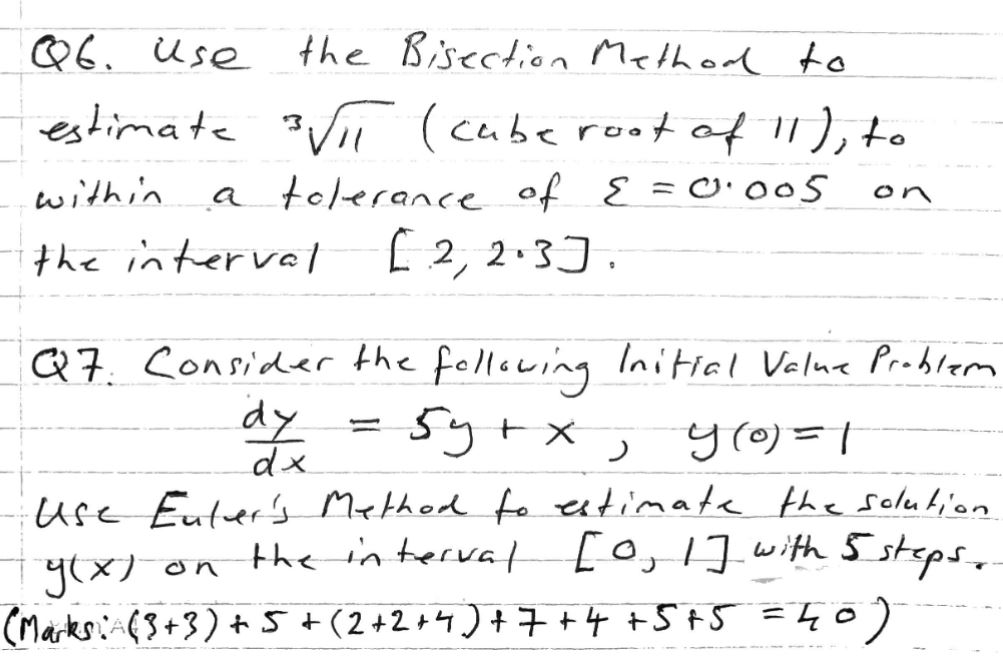 Q6. Use the Bisection Method to
estimate ³√11 (cube root of 11), to
within a tolerance of ε = 0.005 on
the interval [2, 2.3].
Q7. Consider the following Initial Value Problem
dy/dx = 5y + x, y(0) = 1
Use Euler's Method to estimate the solution
y(x) on the interval [0, 1] with 5 steps.
(Marks: (3+3) + 5 + (2+2+4) + 7 + 4 + 5 + 5 = 40)